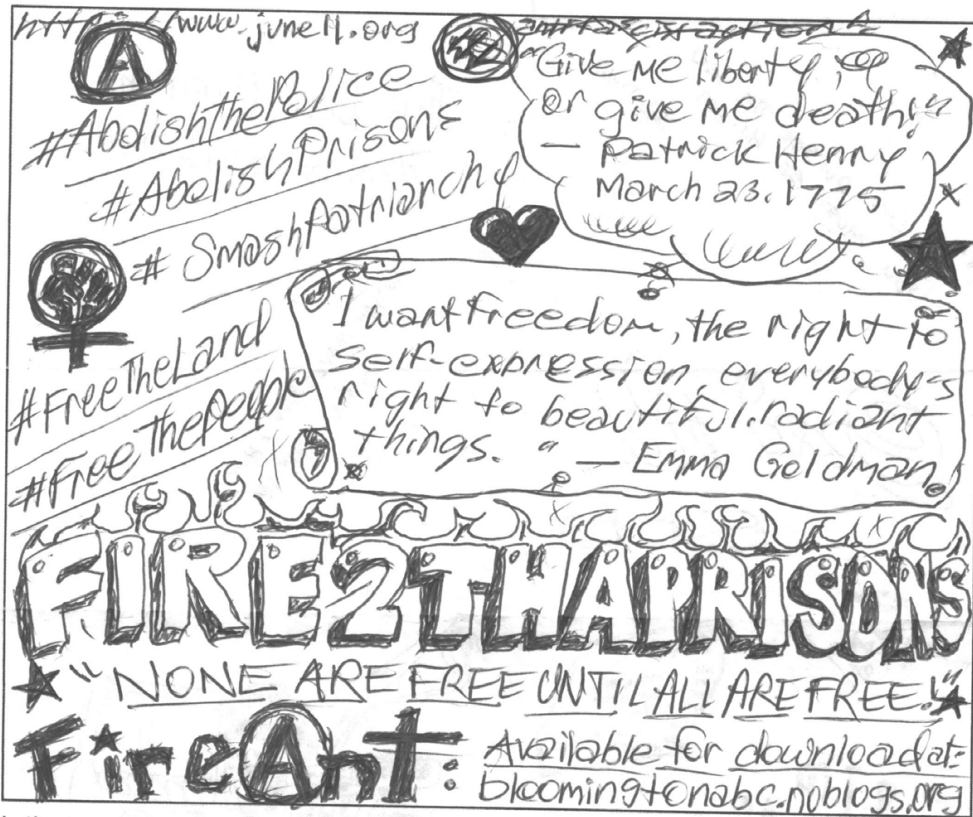 https://www.june11.org
A
#AbolishthePolice
#AbolishPrisons
#SmashPatriarchy
#FreeTheLand
#Free ThePeople
"Give me liberty,
or give me death!"
— Patrick Henry
March 23, 1775
I want freedom, the right to
self-expression, everybody's
right to beautiful, radiant
things." — Emma Goldman
FIRE2THAPRISONS
"NONE ARE FREE UNTIL ALL ARE FREE!"
FireAnt:
Available for download at:
bloomingtonabc.noblogs.org